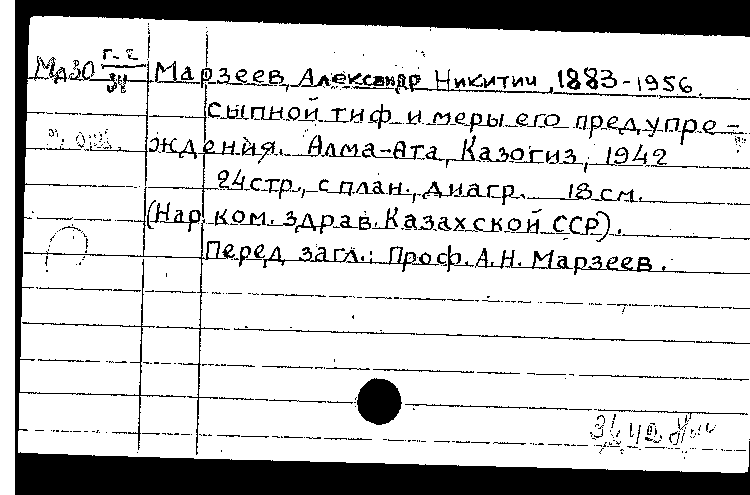 Мд30 Г-2/34 Марзеев, Александр Никитич, 1883-1956.
Сыпной тиф и меры его предупре-
ждения. Алма-Ата, Казогиз, 1942
24стр., с план., диагр. 18 см.
(Нар. ком. здрав. Казахской ССР).
Перед загл.: Проф. А.Н. Марзеев.